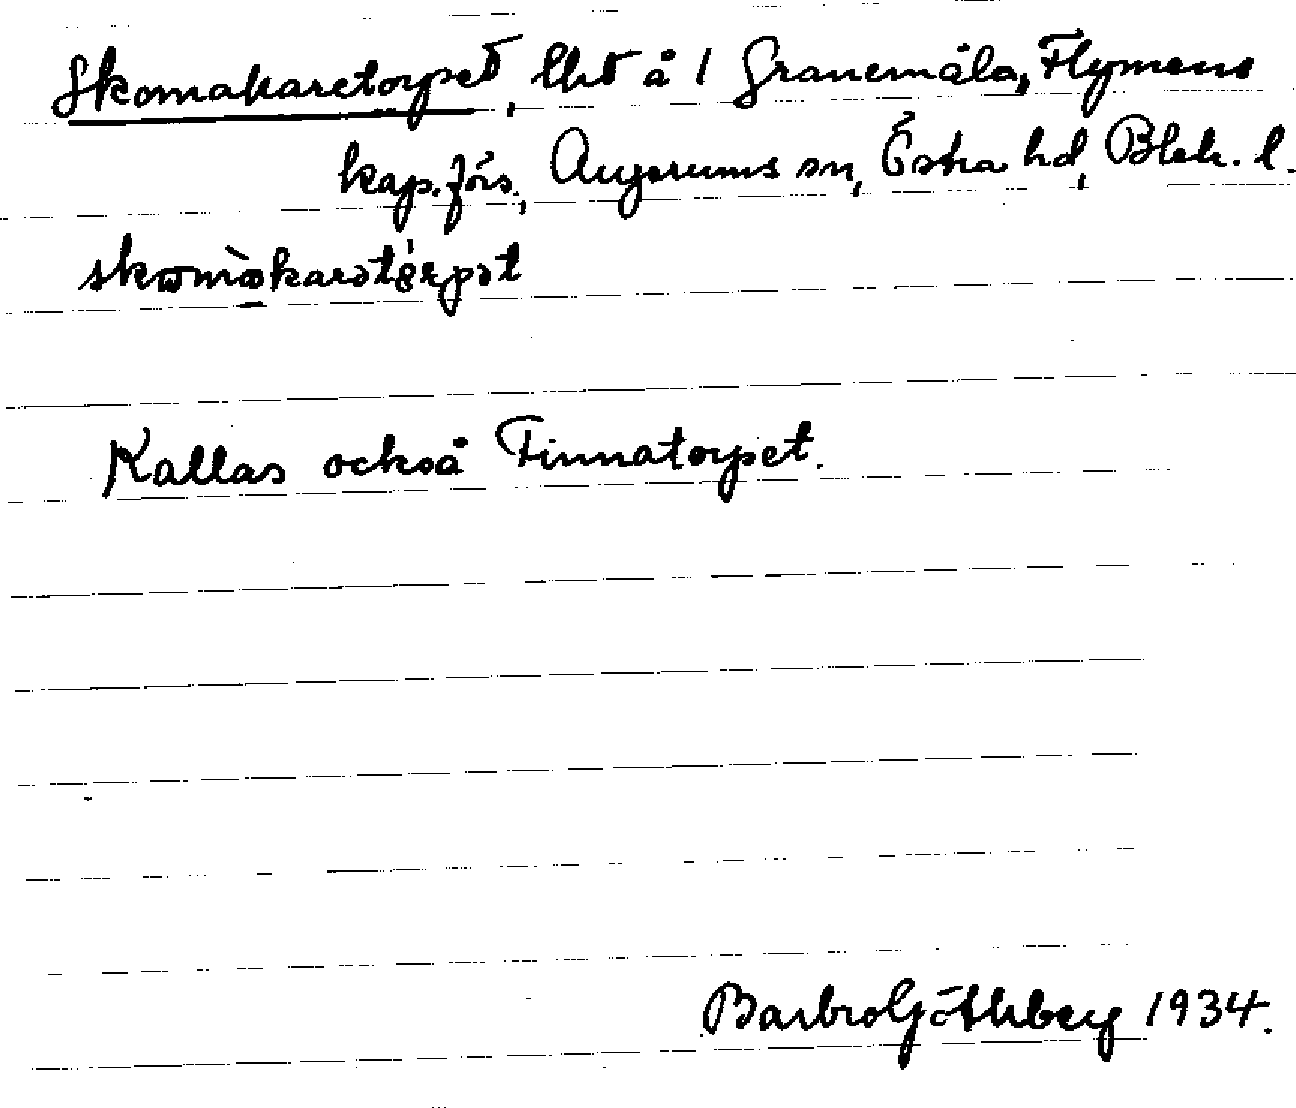 Skomakaretorpet, lht å 1 Granemåla, Flymens
kap.förs., Augerums sn, Östra hd, Blek. l.
Kallas också Finnatorpet.
Barbro Göthberg 1934.